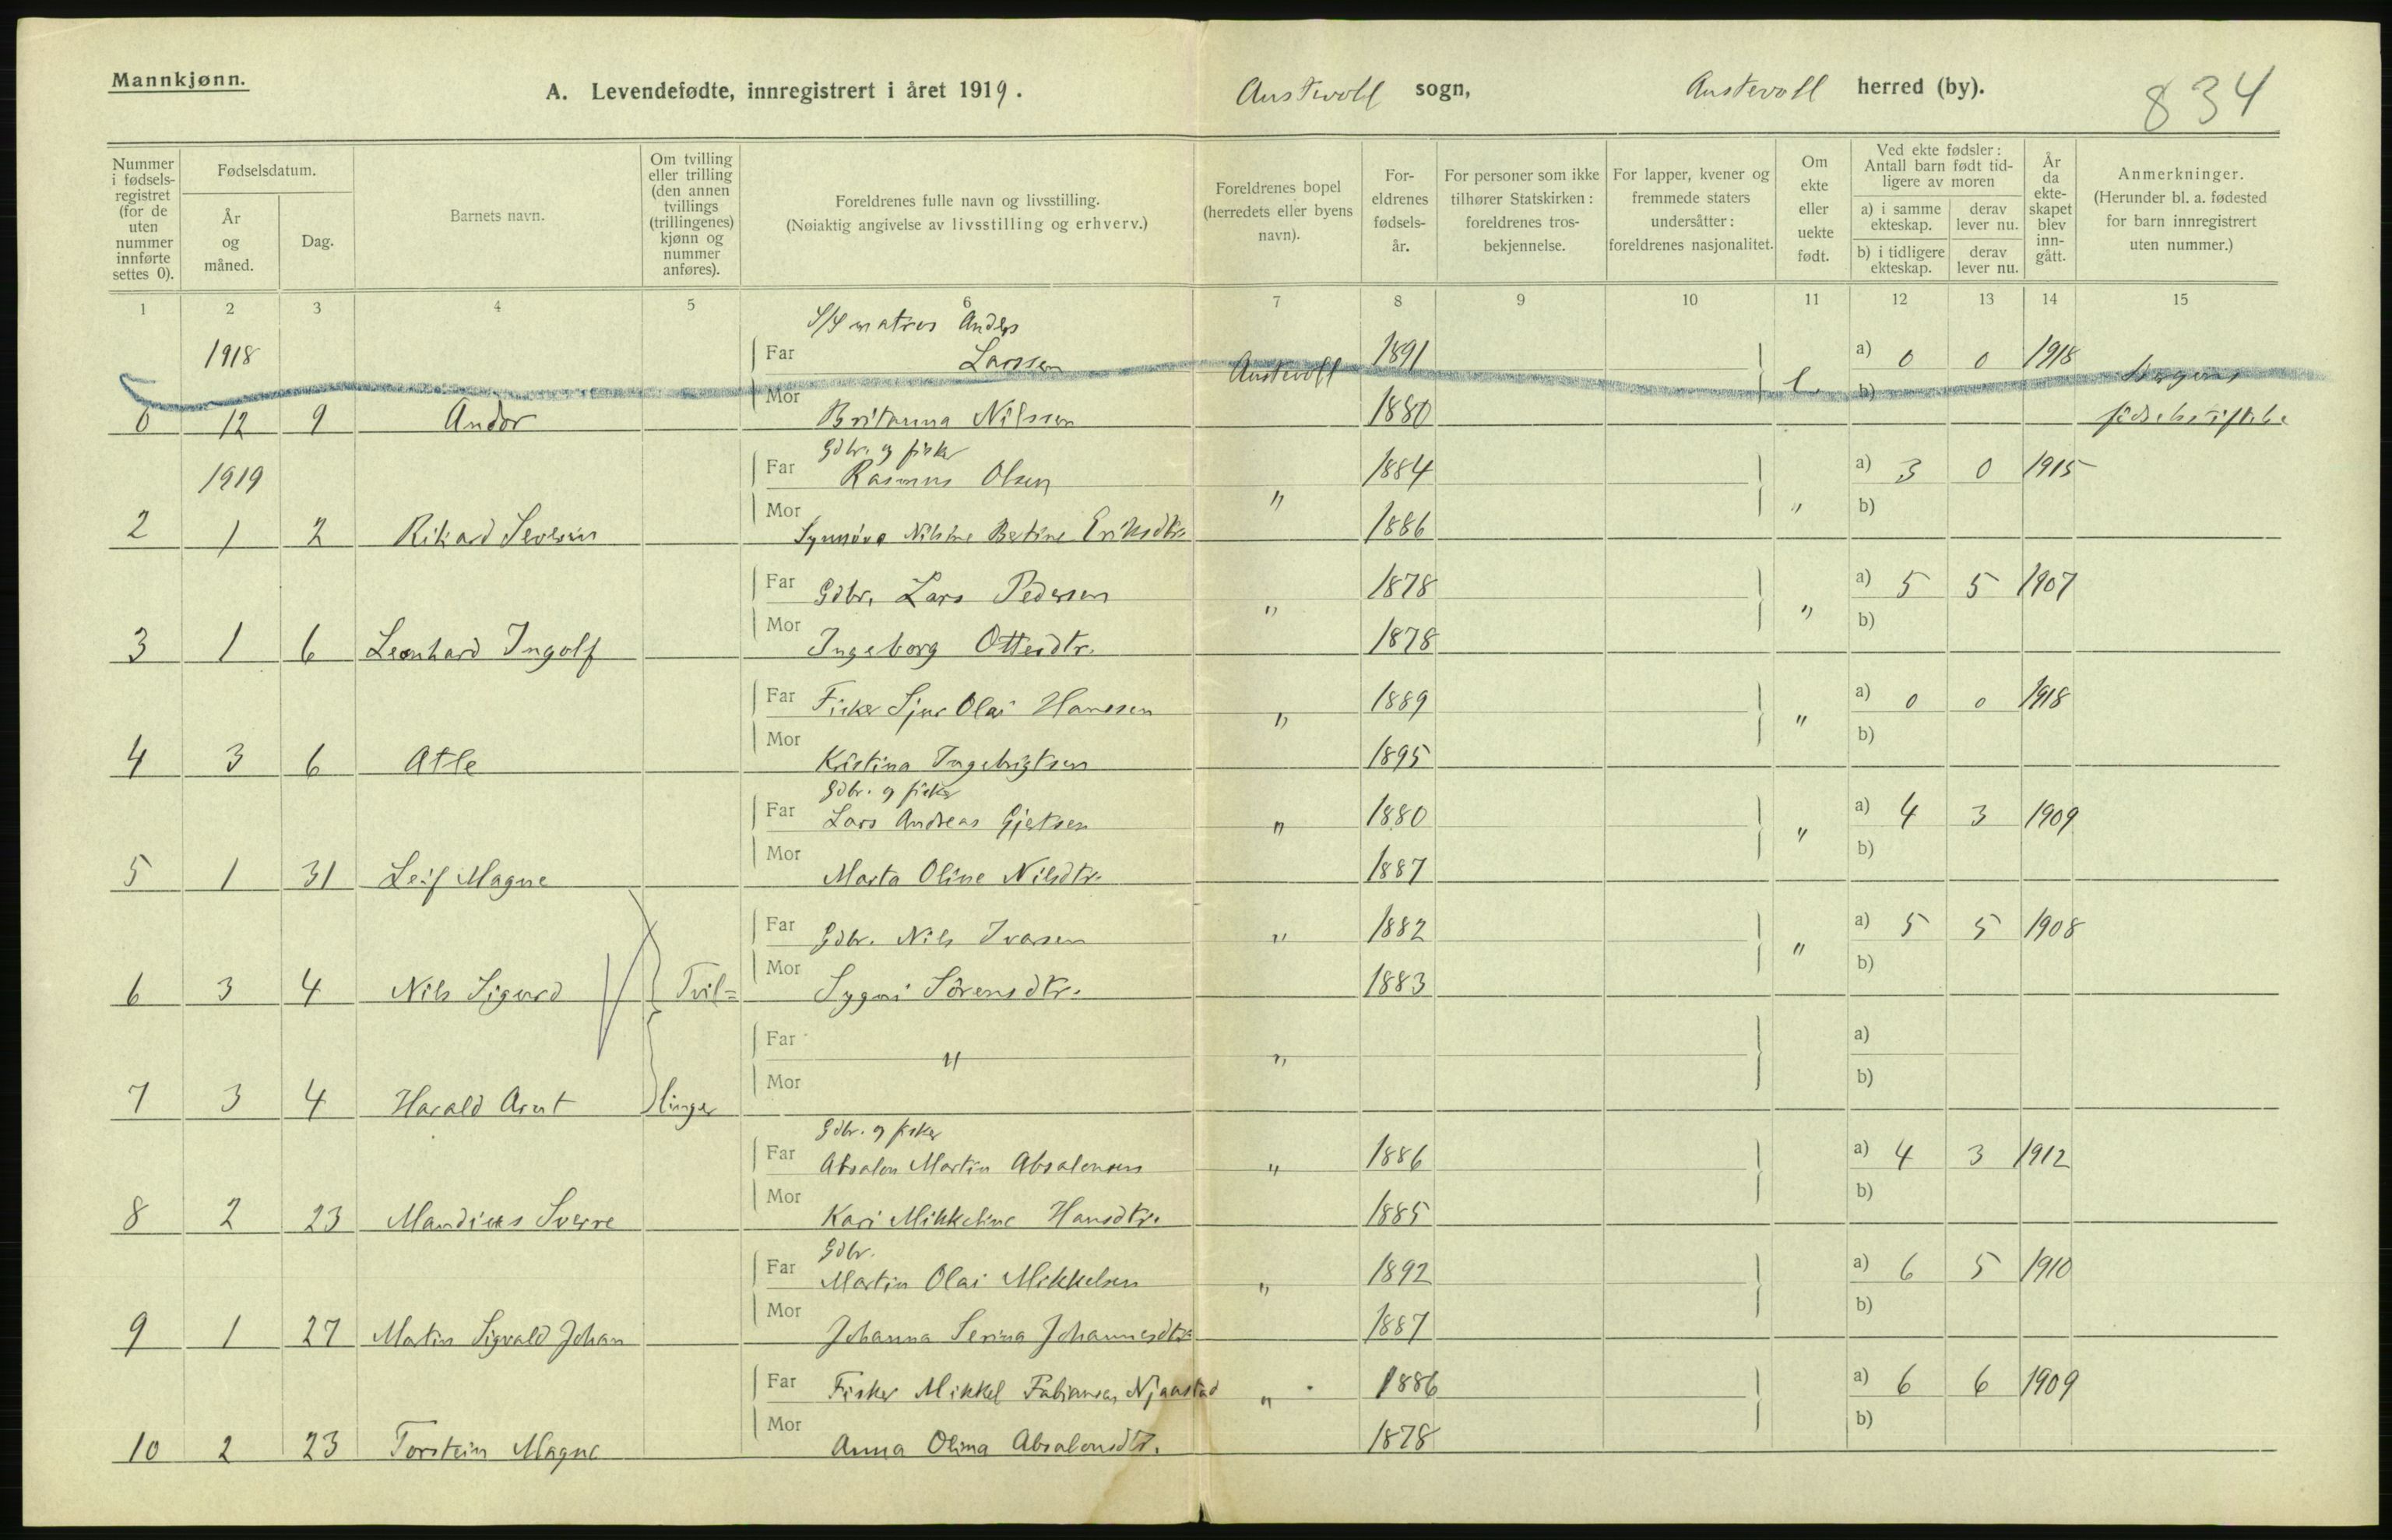 Mannkjønn.
A. Levendefødte, innregistrert i året 1919. Austevoll sogn, Austevoll herred (by). 834
Nummer i fødsels-registret (for de uten nummer innførte settes 0).
Fødselsdatum.
År og måned.
Dag.
Barnets navn.
Om tvilling eller trilling (den annen tvillings (trillingenes) kjønn og nummer anføres).
Foreldrenes fulle navn og livsstilling.
(Nøiaktig angivelse av livsstilling og erhverv.)
Foreldrenes bopel (herredets eller byens navn).
For-eldrenes fødsels-år.
For personer som ikke tilhører Statskirken: foreldrenes tros-bekjennelse.
For lapper, kvener og fremmede staters undersåtter: foreldrenes nasjonalitet.
Om ekte eller uekte født.
Ved ekte fødsler: Antall barn født tid-ligere av moren
a) i samme ekteskap.
derav lever nu.
b) i tidligere ekteskap.
derav lever nu.
År da ekte-skapet blev inn-gått.
Anmerkninger.
(Herunder bl. a. fødested for barn innregistrert uten nummer.)
1 2 3 4 5 6 7 8 9 10 11 12 13 14 15
S/S matros Anders
1918 Far Larssen Austevoll 1891 a) 0 0 1918 Bergens
Mor e b)
0 12 9 Andor Britanna Nilssen 1880 fødselsstiftelse
Gdbr. og fisker
1919 Far Rasmus Olsen " 1884 " a) 3 0 1915
2 1 2 Rikard Severin Mor Synnöve Nilsine Bertine Eriksdtr. 1886 b)
Far Gdbr. Lars Pedersen " 1878 " a) 5 5 1907
3 1 6 Leonhard Ingolf Mor Ingeborg Ottesdtr. 1878 b)
Far Fisker Sjur Olai Hanssen " 1889 " a) 0 0 1918
4 3 6 Atle Mor Kristina Ingebrigtsen 1895 b)
Gdbr. og fisker
Far Lars Andreas Gjertsen " 1880 " a) 4 3 1909
5 1 31 Leif Magne Mor Marta Oline Nilsdtr. 1887 b)
Far Gdbr. Nils Ivarsen " 1882 " a) 5 5 1908
6 3 4 Nils Sigurd Tvil= Mor Sygni Sörensdtr. 1883 b)
Far " " a)
7 3 4 Harald Arnt linger Mor b)
Gdbr. og fisker
Far Absalon Martin Absalonsen " 1886 a) 4 3 1912
8 2 23 Mandius Sverre Mor Kari Mikkeline Hansdtr. 1885 b)
Gdbr.
Far Martin Olai Mikkelsen " 1892 a) 6 5 1910
9 1 27 Martin Sigvald Johan Mor Johanna Serina Johannesdtr. 1887 b)
Far Fisker Mikkel Fabiansen Njaastad " 1886 a) 6 6 1909
10 2 23 Torstein Magne Mor Anna Olina Absalonsdtr. 1878 b)